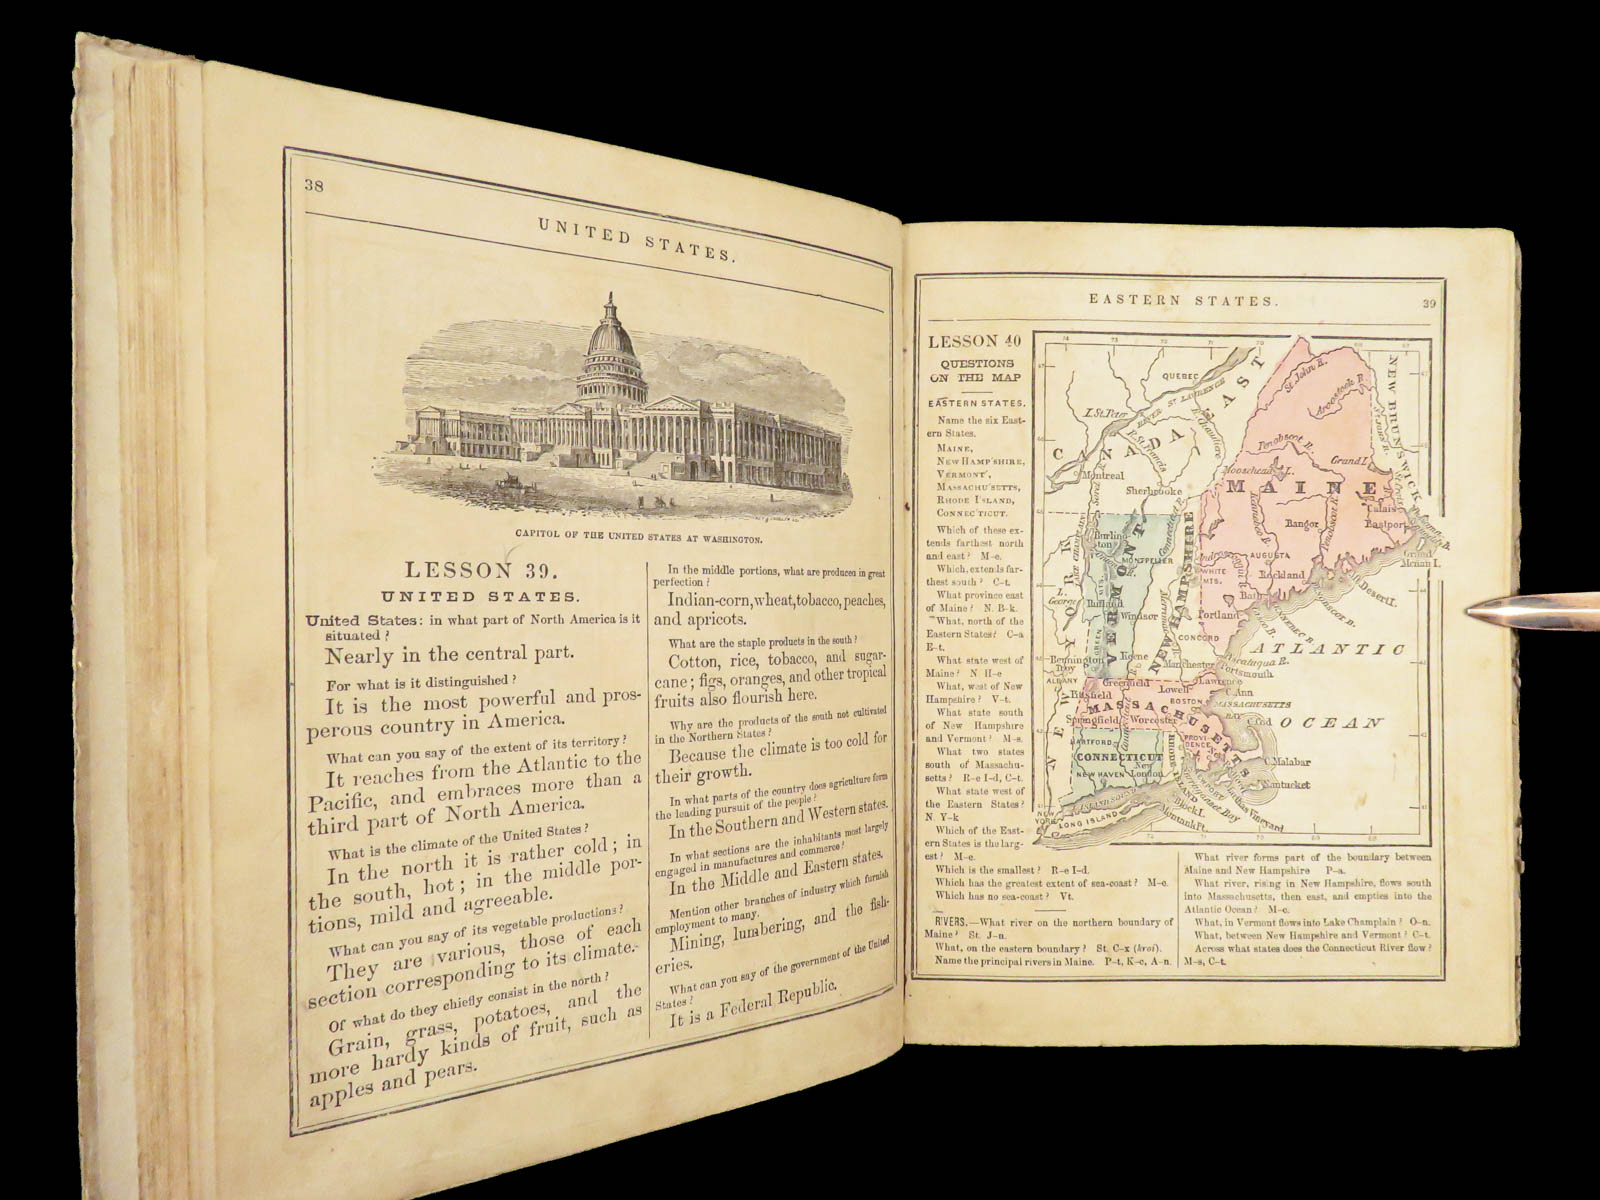 38
UNITED STATES.
CAPITOL OF THE UNITED STATES AT WASHINGTON.
LESSON 39.
UNITED STATES.
United States: in what part of North America is it
situated?
Nearly in the central part.
For what is it distinguished?
It is the most powerful and pros-
perous country in America.
What can you say of the extent of its territory?
It reaches from the Atlantic to the
Pacific, and embraces more than a
third part of North America.
What is the climate of the United States?
In the north it is rather cold; in
the south, hot; in the middle por-
tions, mild and agreeable.
What can you say of its vegetable productions?
They are various, those of each
section corresponding to its climate.
Of what do they chiefly consist in the north?
Grain, grass, potatoes, and the
more hardy kinds of fruit, such as
apples and pears.
In the middle portions, what are produced in great
perfection?
Indian-corn, wheat, tobacco, peaches,
and apricots.
What are the staple products in the south?
Cotton, rice, tobacco, and sugar-
cane; figs, oranges, and other tropical
fruits also flourish here.
Why are the products of the south not cultivated
in the Northern States?
Because the climate is too cold for
their growth.
In what parts of the country does agriculture form
the leading pursuit of the people?
In the Southern and Western states.
In what sections are the inhabitants most largely
engaged in manufactures and commerce?
In the Middle and Eastern states.
Mention other branches of industry which furnish
employment to many.
Mining, lumbering, and the fish-
eries.
What can you say of the government of the United
States?
It is a Federal Republic.
EASTERN STATES.
39
LESSON 40
QUESTIONS
ON THE MAP
EASTERN STATES.
Name the six East-
ern States.
MAINE,
NEW HAMP'SHIRE,
VERMONT',
MASSACHU'SETTS,
RHODE I'SLAND,
CONNEC'TICUT.
Which of these ex-
tends farthest north
and east? M-e.
Which, extends far-
thest south? C-t.
What province east
of Maine? N. B-k.
What, north of the
Eastern States? C-a
E-t.
What state west of
Maine? N H-e
What, west of New
Hampshire? V-t.
What state south
of New Hampshire
and Vermont? M-s.
What two states
south of Massachu-
setts? R-e I-d, C-t.
What state west of
the Eastern States?
N. Y-k
Which of the East-
ern States is the larg-
est? M-e.
Which is the smallest? R-e I-d.
Which has the greatest extent of sea-coast? M-e.
Which has no sea-coast? Vt.
RIVERS.—What river on the northern boundary of
Maine? St. J-n.
What, on the eastern boundary? St. C-x (kroi).
Name the principal rivers in Maine. P-t, K-c, A-n.
What river forms part of the boundary between
Maine and New Hampshire P-a.
What river, rising in New Hampshire, flows south
into Massachusetts, then east, and empties into the
Atlantic Ocean? M-c.
What, in Vermont flows into Lake Champlain? O-n.
What, between New Hampshire and Vermont? C-t.
Across what states does the Connecticut River flow?
M-s, C-t.
QUEBEC
RIVER ST LAWRENCE
I. St. Peter
CANADA EAST
R. Chaudiere
R. St. Francis
Montreal
Sherbrooke
NEW BRUNSWICK
St. John R.
Aroostook R.
Penobscot R.
Grand L.
Moosehead L.
MAINE
Calais
Bangor
Eastport
Grand
Menan I.
Kennebec R.
Penobscot R.
AUGUSTA
Rockland
Bath
Portland
WHITE
MTS.
Desert I.
Penobscot B.
Casco B.
Burling
ton
MONTPELLER
VERMONT
Connecticut R.
NEW HAMPSHIRE
LAKE CHAMPLAIN
L.
George
Rutland
Windsor
GREEN
MTS.
CONCORD
Keene
Manchester
Bennington
Troy
ALBANY
NEW YORK
Piscataqua R.
Portsmouth
ATLANTIC
OCEAN
Greenfield
Lowell
Lawrence
C. Ann
Pittsfield
BOSTON
MASSACHUSETTS
BAY
MASSACHUSETTS
Springfield
Worcester
C. Cod
HARTFORD
PROVI
DENCE
CONNECTICUT
NEW HAVEN
New
London
RHODE ISLAND
NEWPORT
C. Malabar
Nantucket
Marthas Vineyard
Narraganset Bay
Block I.
Montauk Pt.
L. ISLAND SOUND
LONG ISLAND
NEW
YORK